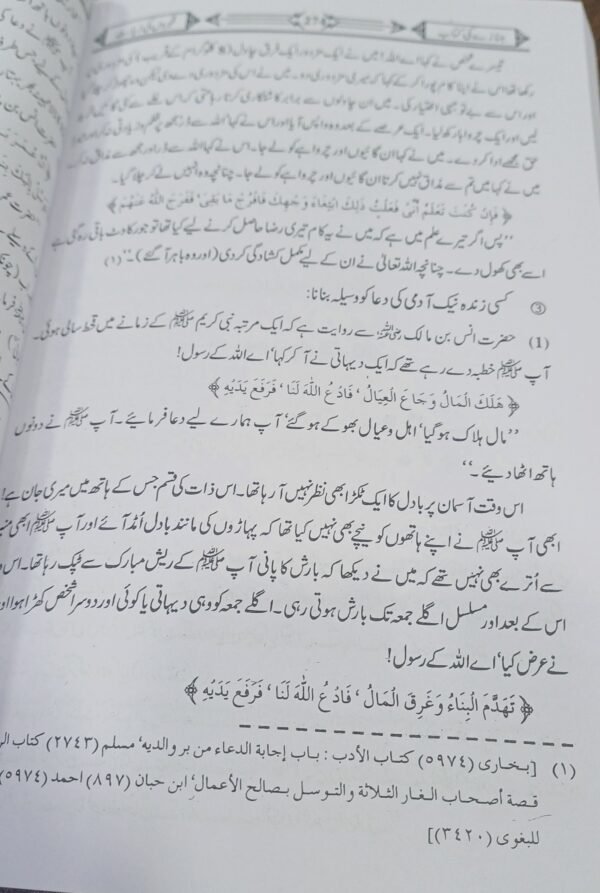 جنازے کی کتاب
37
تیسرے شخص نے کہا اے اللہ! میں نے ایک مزدور ایک فرق چاول (8 کلوگرام کے قریب) کی مزدوری پر
رکھا تھا اس نے اپنا کام پورا کر کے کہا کہ میری مزدوری دو۔ میں نے اس کی مزدوری دے دی لیکن وہ چھوڑ کر چلا گیا
اور اس سے بے توجہی اختیار کی۔ میں ان چاولوں سے برابر کاشتکاری کرتا رہا حتی کہ اس سے گائیں
لیں اور ایک چرواہا رکھ لیا۔ ایک عرصے کے بعد وہ واپس آیا اور اس نے کہا اللہ سے ڈر مجھ پر ظلم و زیادتی نہ کر اور
حق مجھے ادا کر دے۔ میں نے کہا ان گائیوں اور چرواہے کو لے جا۔ اس نے کہا اللہ سے ڈر اور مجھ سے مذاق نہ کر
میں نے کہا میں تم سے مذاق نہیں کرتا ان گائیوں اور چرواہے کو لے جا۔ چنانچہ وہ انہیں لے کر چلا گیا۔
﴿ فَإِنْ كُنْتَ تَعْلَمُ أَنِّي فَعَلْتُ ذٰلِكَ ابْتِغَاءَ وَجْهِكَ فَافْرُجْ مَا بَقِيَ ' فَفَرَجَ اللّٰهُ عَنْهُمْ ﴾
’’پس اگر تیرے علم میں ہے کہ میں نے یہ کام تیری رضا حاصل کرنے کے لیے کیا تھا تو جو رکاوٹ باقی رہ گئی ہے
اسے بھی کھول دے۔ چنانچہ اللہ تعالیٰ نے ان کے لیے مکمل کشادگی کر دی (اور وہ باہر آ گئے)۔‘‘ (۱)
③ کسی زندہ نیک آدمی کی دعا کو وسیلہ بنانا:
(1) حضرت انس بن مالک رضی اللہ عنہ سے روایت ہے کہ ایک مرتبہ نبی کریم ﷺ کے زمانے میں قحط سالی ہوئی۔
آپ ﷺ خطبہ دے رہے تھے کہ ایک دیہاتی نے آ کر کہا' اے اللہ کے رسول!
﴿ هَلَكَ الْمَالُ وَجَاعَ الْعِيَالُ ' فَادْعُ اللّٰهَ لَنَا ' فَرَفَعَ يَدَيْهِ ﴾
’’مال ہلاک ہو گیا' اہل و عیال بھوکے ہو گئے' آپ ہمارے لیے دعا فرمائیے۔ آپ ﷺ نے دونوں
ہاتھ اٹھا دیئے۔‘‘
اس وقت آسمان پر بادل کا ایک ٹکڑا بھی نظر نہیں آ رہا تھا۔ اس ذات کی قسم جس کے ہاتھ میں میری جان ہے!
ابھی آپ ﷺ نے اپنے ہاتھوں کو نیچے بھی نہیں کیا تھا کہ پہاڑوں کی مانند بادل اُمڈ آئے اور آپ ﷺ ابھی
سے اُترے بھی نہیں تھے کہ میں نے دیکھا کہ بارش کا پانی آپ ﷺ کے ریش مبارک سے ٹپک رہا تھا۔ اس
اس کے بعد اور مسلسل اگلے جمعہ تک بارش ہوتی رہی۔ اگلے جمعہ کو وہی دیہاتی یا کوئی اور دوسرا شخص کھڑا ہوا
نے عرض کیا' اے اللہ کے رسول!
﴿ تَهَدَّمَ الْبِنَاءُ وَغَرِقَ الْمَالُ ' فَادْعُ اللّٰهَ لَنَا ' فَرَفَعَ يَدَيْهِ ﴾
(۱) [بخاری (۵۹۷۴) کتاب الأدب : باب إجابة الدعاء من بر والدیه' مسلم (۲۷۴۳) کتاب
قصة أصحاب الغار الثلاثة والتوسل بصالح الأعمال' ابن حبان (۸۹۷) احمد (۵۹۷۴)
للبغوی (۳۴۲۰)]